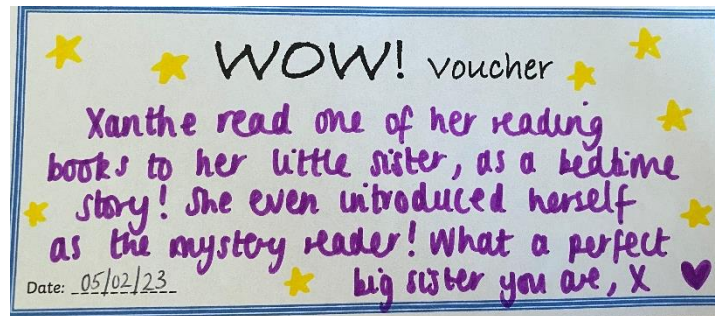 WOW! voucher
Xanthe read one of her reading
books to her little sister, as a bedtime
story! She even introduced herself
as the mystery reader! What a perfect
big sister you are, X
Date: 05/02/23